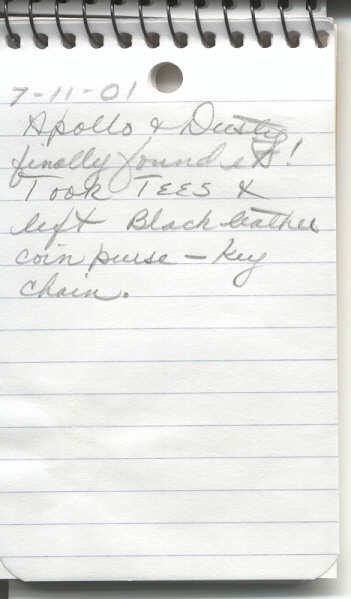 7-11-01
Apollo & Dusty
finally found it!
Took TEES &
left Black leather
coin purse - key
chain.